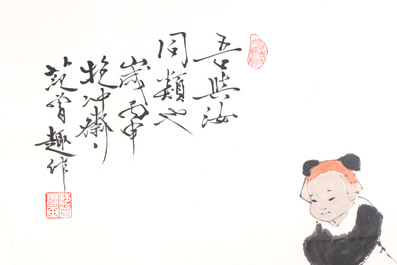 吾與汝
同類也
歲丙申
抱冲齋
范曾趣作